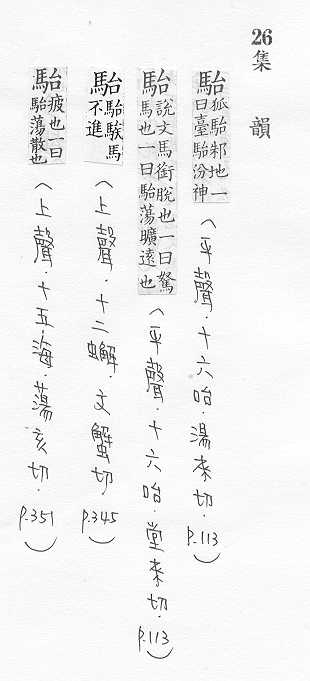 26集韻
駘狐駘邾地一曰臺駘汾神(平聲.十六咍.湯來切.P.113)
駘說文馬銜脫也一曰駑馬也一曰駘蕩曠遠也(平聲.十六咍.堂來切.P.113)
駘駘騃馬不進(上聲.十二蠏.文蟹切.P.345)
駘疲也一曰駘蕩散也(上聲.十五海.蕩亥切.P.351)